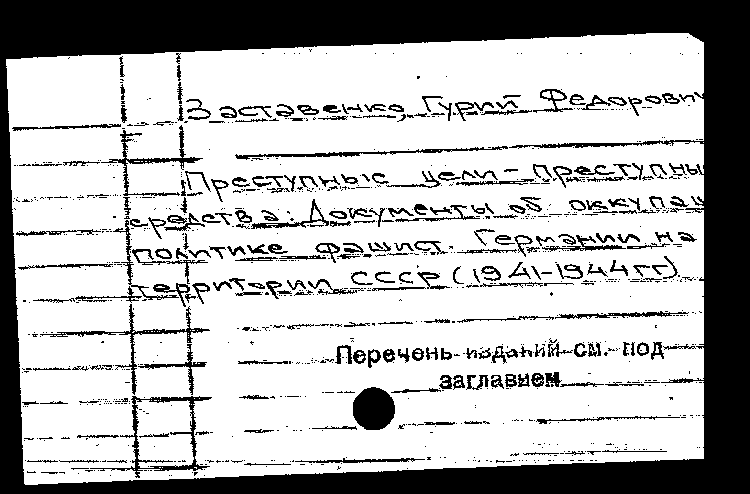 Заставенко, Гурий Федорович
Преступные цели - преступные
средства: Документы об оккупац
политике фашист. Германии на
территории СССР (1941-1944гг)
Перечень изданий см. под
заглавием